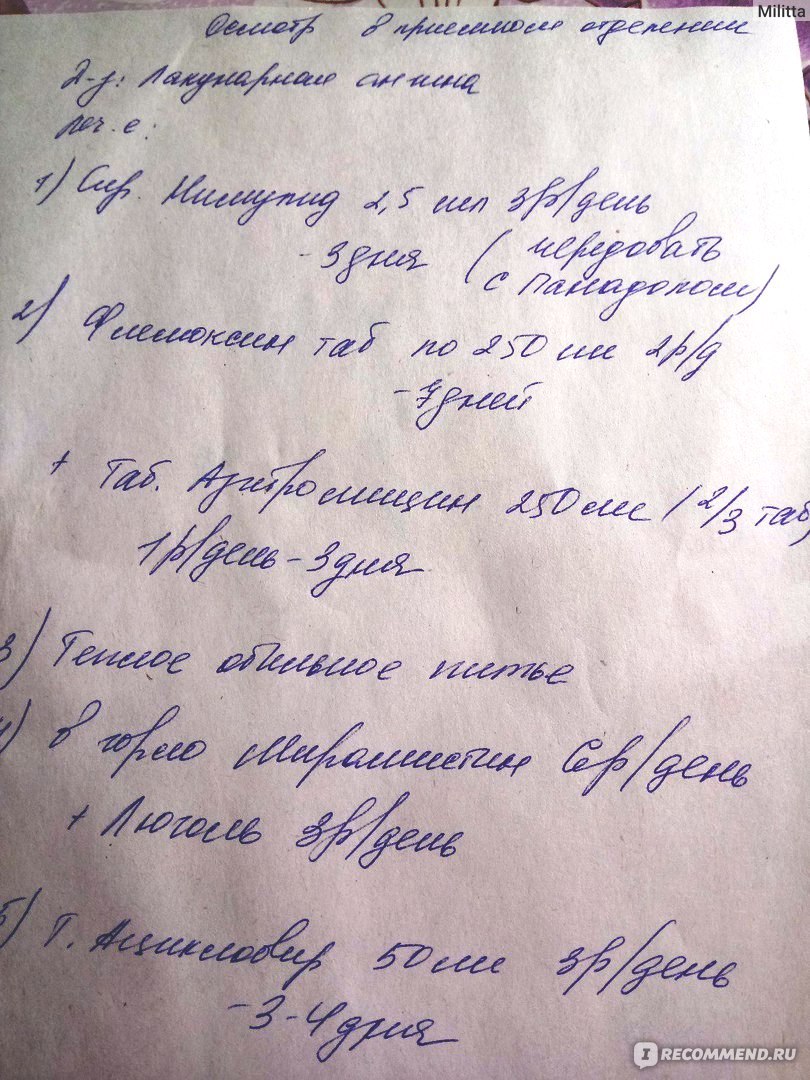 Militta
Осмотр в приемном отделении
Д-з: Лакунарная ангина
Леч-е:
1) Сир. Нимулид 2,5 мл 3р/день
- 3 дня ( чередовать
с Панадолом)
2) Флемоксин таб по 250 мг 2р/д
- 7 дней
+ Таб. Азитромицин 250 мг (2/3 таб)
1р/день - 3 дня
3) Теплое обильное питье
4) в горло Мирамистин 6р/день
+ Люголь 3р/день
5) Т. Ацикловир 50 мг 3р/день
- 3-4 дня
IRECOMMEND.RU